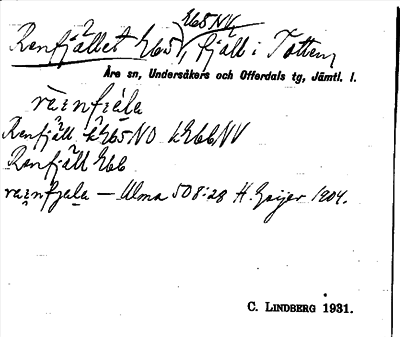 E65NV,
Renfjället E65, fjäll i Totten,
Åre sn, Undersåkers och Offerdals tg, Jämtl. l.
ràenfjä́la
Renfjäll k E65NO k E66NV
Renfjäll E66
rɑenfjala — Ulma 508:28 H. Geijer 1904.
C. LINDBERG 1931.